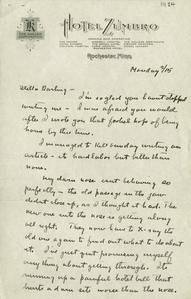 HOTEL ZUMBRO
Rochester, Minn.
Monday 9/15
Hello Darling -
I'm so glad you haven't stopped
writing me - I was afraid you would
after I wrote you that foolish hope of being
home by this time.
I managed to kill Sunday writing an
article - its hard labor but better than
none.
My darn nose isn't behaving so
perfectly - the old passage in the jaw
didn't close up, as I thought it had. The
new one into the nose is getting along
all right. They now have to X-ray the
old one again to find out what to do about
it. I'm just quit promising myself
anything about getting through. Its
running up a painful hotel bill that
hurts a darn site worse than the nose.